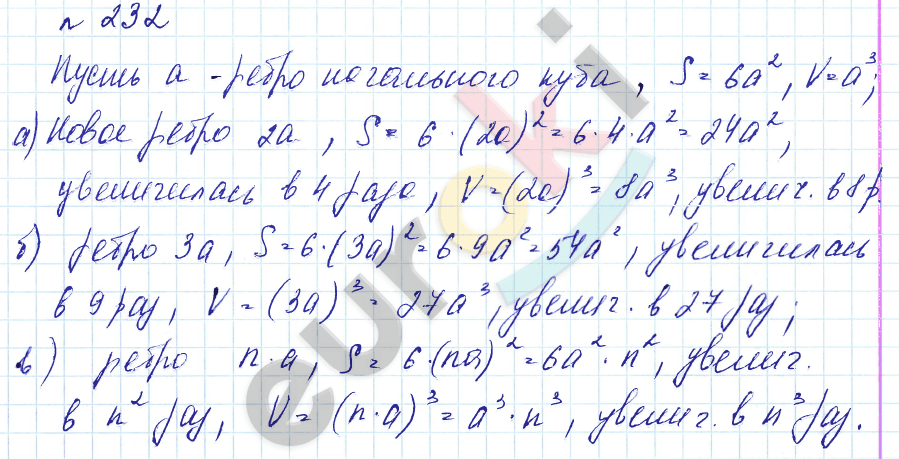 n 232
Пусть a - ребро начального куба, S = 6a², V = a³;
а) Новое ребро 2a, S = 6 · (2a)² = 6 · 4 · a² = 24a²,
увеличилась в 4 раза, V = (2a)³ = 8a³, увелич. в 8 р.
б) ребро 3a, S = 6 · (3a)² = 6 · 9a² = 54a², увеличилась
в 9 раз, V = (3a)³ = 27a³, увелич. в 27 раз;
в) ребро n · a, S = 6 · (na)² = 6a² · n², увелич.
в n² раз, V = (n · a)³ = a³ · n³, увелич. в n³ раз.
euroki